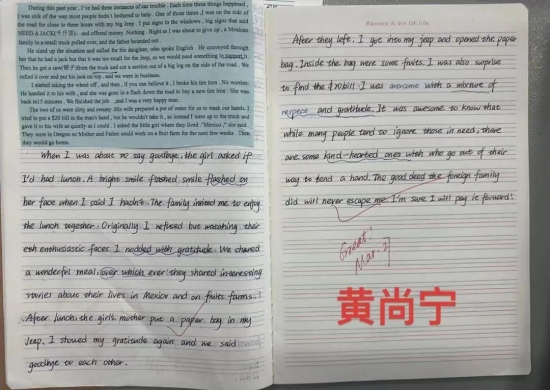 During this past year, I've had three instances of car trouble. Each time these things happened,
I was sick of the way most people hadn't bothered to help. One of those times I was on the side of
the road for close to three hours with my big Jeep. I put signs in the windows, big signs that said
NEED A JACK(千斤顶), and offered money. Nothing. Right as I was about to give up, a Mexican
family in a small truck pulled over, and the father bounded out.
He sized up the situation and called for his daughter, who spoke English. He conveyed through
her that he had a jack but that it was too small for the Jeep, so we would need something to support it.
Then he got a saw from the truck and cut a section out of a big log on the side of the road. We
rolled it over and put his jack on top, and we were in business.
I started taking the wheel off, and then, if you can believe it, I broke his tire iron. No worries:
He handed it to his wife, and she was gone in a flash down the road to buy a new tire iron. She was
back in 15 minutes. We finished the job, and I was a very happy man.
The two of us were dirty and sweaty. His wife prepared a pot of water for us to wash our hands. I
tried to put a $20 bill in the man's hand, but he wouldn't take it, so instead I went up to the truck and
gave it to his wife as quietly as I could. I asked the little girl where they lived. "Mexico," she said.
They were in Oregon so Mother and Father could work on a fruit farm for the next few weeks. Then
they would go home.
When I was about to say goodbye, the girl asked if
I'd had lunch. A bright smile flashed smile flashed on
her face when I said I hadn't. The family invited me to enjoy
the lunch together. Originally I refused but watching their
enthusiastic faces I nodded with gratitude. We shared
a wonderful meal, over which ever they shared interesting
stories about their lives in Mexico and on fruits farms.
After lunch, the girl's mother put a paper bag in my
Jeep. I showed my gratitude again and we said
goodbye to each other.
After they left, I got into my jeep and opened the paper
bag. Inside the bag were some fruits. I was also surprise
to find the $20 bill. I was overcome with a mixture of
respect and gratitude. It was awesome to know that
while many people tend to ignore those in need, there
are some kind-hearted ones who go out of their
way to lend a hand. The good deed the foreign family
did will never escape me. I'm sure I will pay it forward!
Great!
Mar. 27
黄尚宁